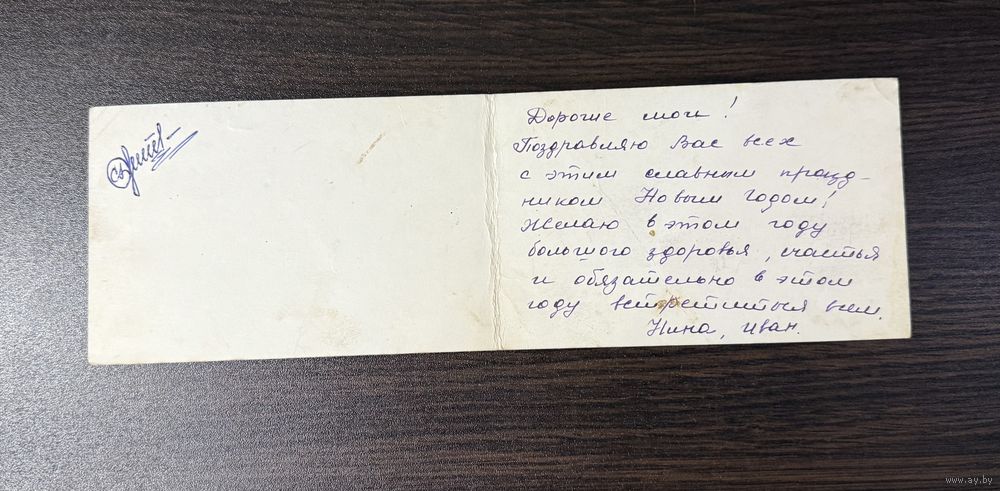 Дорогие мои!
Поздравляю Вас всех
с этим славным празд-
ником Новым Годом!
Желаю в этом году
большого здоровья, счастья
и обязательно в этом
году встретиться всем.
Нина, Иван.
www.ay.by